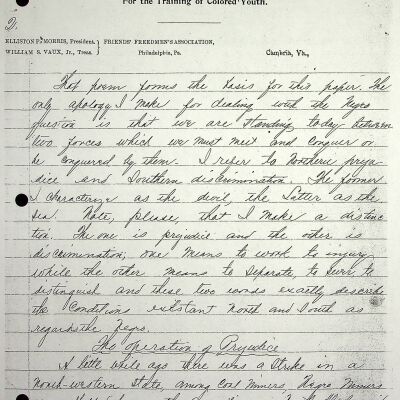 For the Training of Colored Youth.
2.
ELLISTON P. MORRIS, President,
WILLIAM S. VAUX, Jr., Treas.
FRIENDS' FREEDMEN'S ASSOCIATION,
Philadelphia, Pa.
Cambria, Va.,
That poem forms the basis for this paper. The
only apology I make for dealing with the Negro
question is that we are standing today between
two forces which we must meet and conquer or
be conquered by them. I refer to Northern preju
dice and Southern discrimination. The former
I characterize as the devil, the latter as the
sea. Note, please, that I make a distinc
tion. The one is prejudice and the other is
discrimination; one means to work to injury
while the other means to separate, to sever, to
distinguish and these two words exactly describe
the conditions existant North and South as
regards the Negro.
The Operation of Prejudice
A little while ago there was a strike in a
North-western state among Coal Miners. Negro Miners